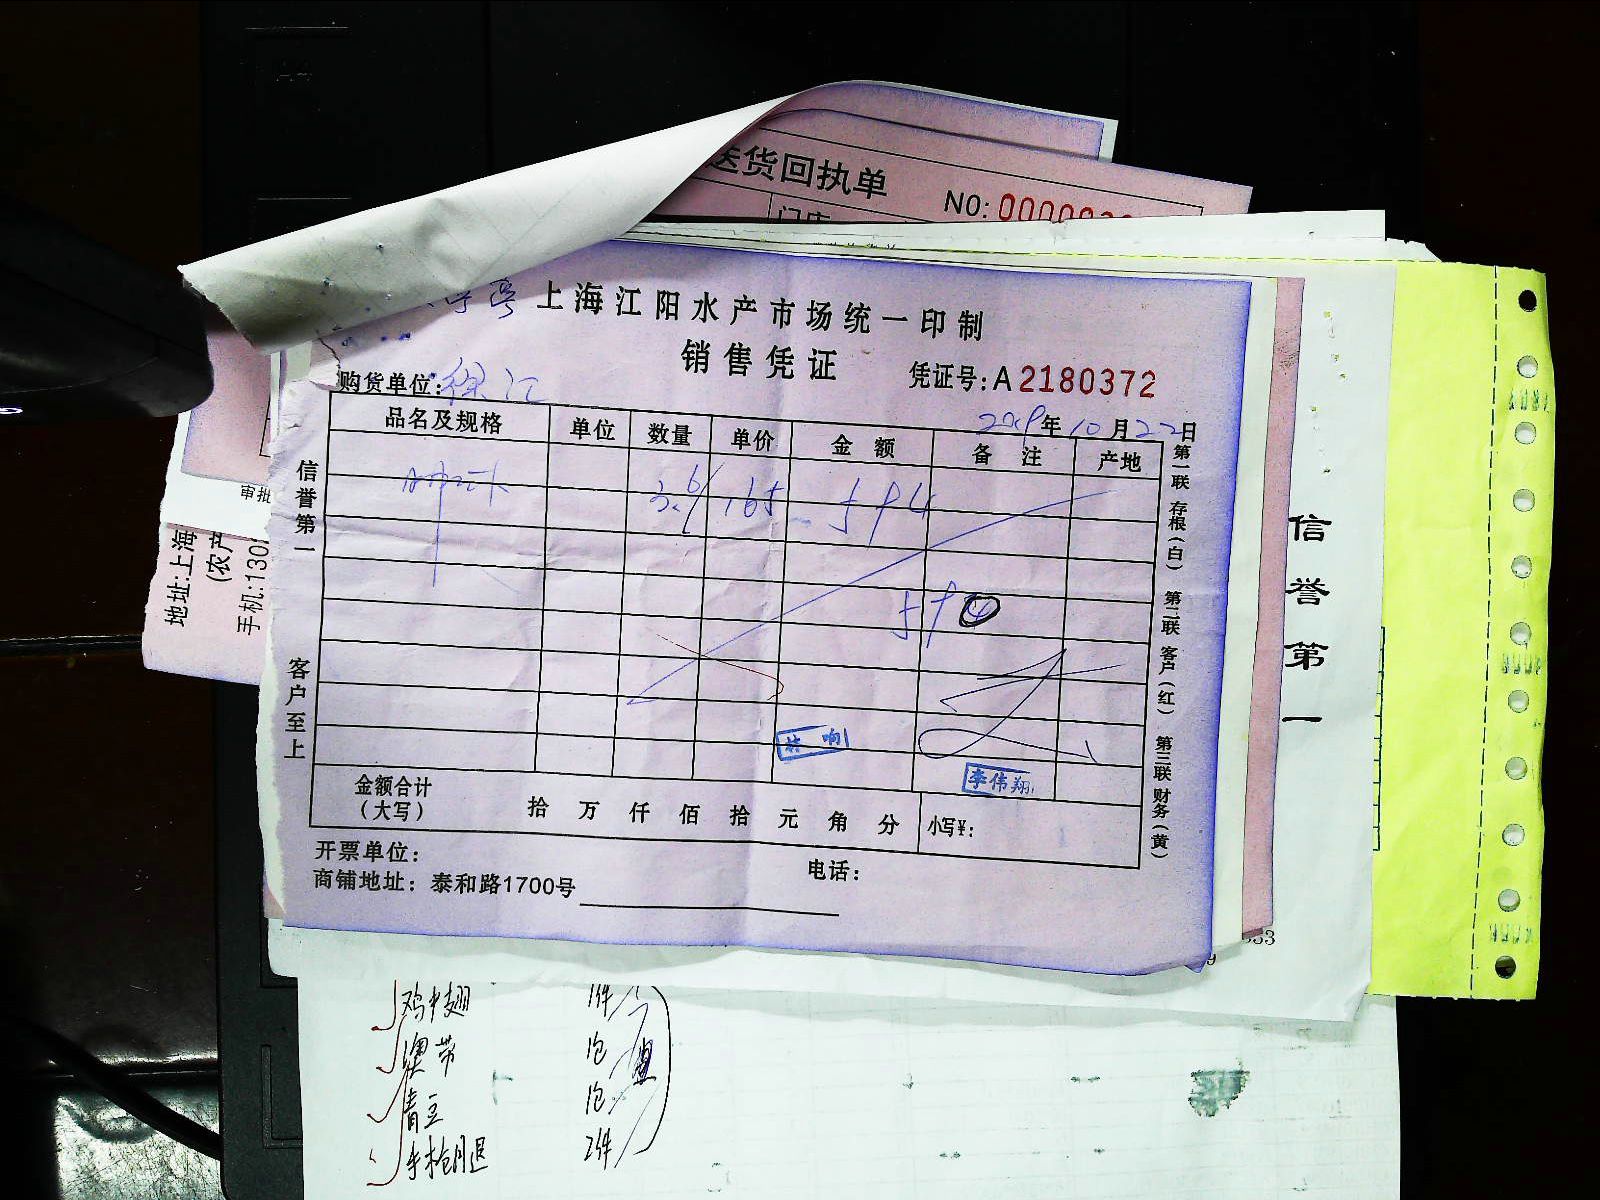 送货回执单
NO: 00000
门店
上海江阳水产市场统一印制
销售凭证
凭证号:A 2180372
购货单位:徐江
2019年10月22日
品名及规格 单位 数量 单价 金额 备注 产地
3.6 165 594
594
信誉第一
客户至上
第一联 存根(白) 第二联 客户(红) 第三联 财务(黄)
李伟翔
金额合计
(大写)
拾 万 仟 佰 拾 元 角 分 小写¥:
开票单位:
电话:
商铺地址: 泰和路1700号
审批
地址:上海
(农产
手机:130
信誉第一
鸡中翅 1件
澳带 1包
青豆 1包
手枪腿 2件